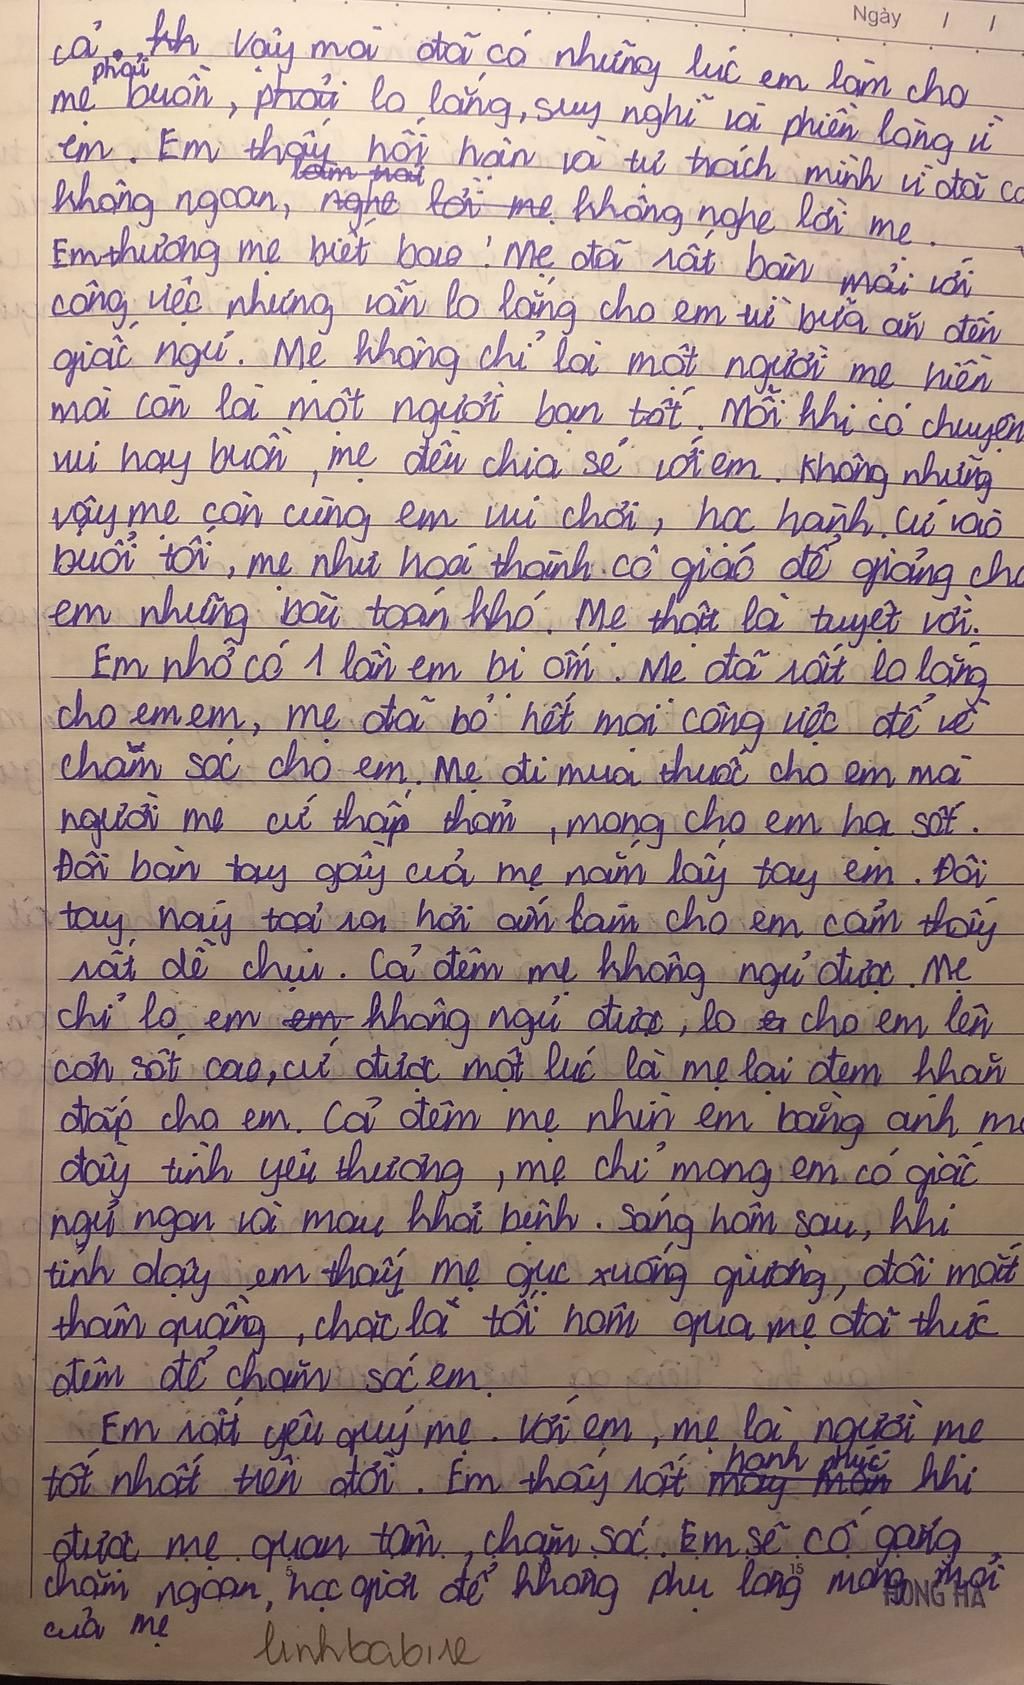 Ngày / /
cả. kh Vậy mà đã có những lúc em làm cho
phải
mẹ buồn, phải lo lắng, suy nghĩ và phiền lòng vì
em. Em thấy hối hận và tự trách mình vì đã
làm trái
không ngoan, nghe lời mẹ không nghe lời mẹ.
Em thương mẹ biết bao! Mẹ đã rất bận mải với
công việc nhưng vẫn lo lắng cho em từ bữa ăn đến
giấc ngủ. Mẹ không chỉ là một người mẹ hiền
mà còn là một người bạn tốt. Mỗi khi có chuyện
vui hay buồn, mẹ đều chia sẻ với em. Không những
vậy mẹ còn cùng em vui chơi, học hành. Cứ vào
buổi tối, mẹ như hoá thành cô giáo để giảng cho
em những bài toán khó. Mẹ thật là tuyệt vời.
Em nhớ có 1 lần em bị ốm. Mẹ đã rất lo lắng
cho em em, mẹ đã bỏ hết mọi công việc để về
chăm sóc cho em. Mẹ đi mua thuốc cho em mà
người mẹ cứ thấp thỏm, mong cho em hạ sốt.
Đôi bàn tay gầy của mẹ nắm lấy tay em. Đôi
tay này toả ra hơi ấm làm cho em cảm thấy
rất dễ chịu. Cả đêm mẹ không ngủ được. Mẹ
chỉ lo em em không ngủ được, lo e cho em lên
cơn sốt cao, cứ được một lúc là mẹ lại đem khăn
đắp cho em. Cả đêm mẹ nhìn em bằng ánh mắ
đầy tình yêu thương, mẹ chỉ mong em có giấc
ngủ ngon và mau khỏi bệnh. Sáng hôm sau, khi
tỉnh dậy em thấy mẹ gục xuống giường, đôi mắt
thâm quầng, chắc là tối hôm qua mẹ đã thức
đêm để chăm sóc em.
Em rất yêu quý mẹ. Với em, mẹ là người mẹ
hạnh phúc
tốt nhất trên đời. Em thấy rất may mắn khi
được mẹ quan tâm, chăm sóc. Em sẽ cố gắng
chăm ngoan, học giỏi để không phụ lòng mong mỏi
5 15 HONG HA
của mẹ
linhbabie